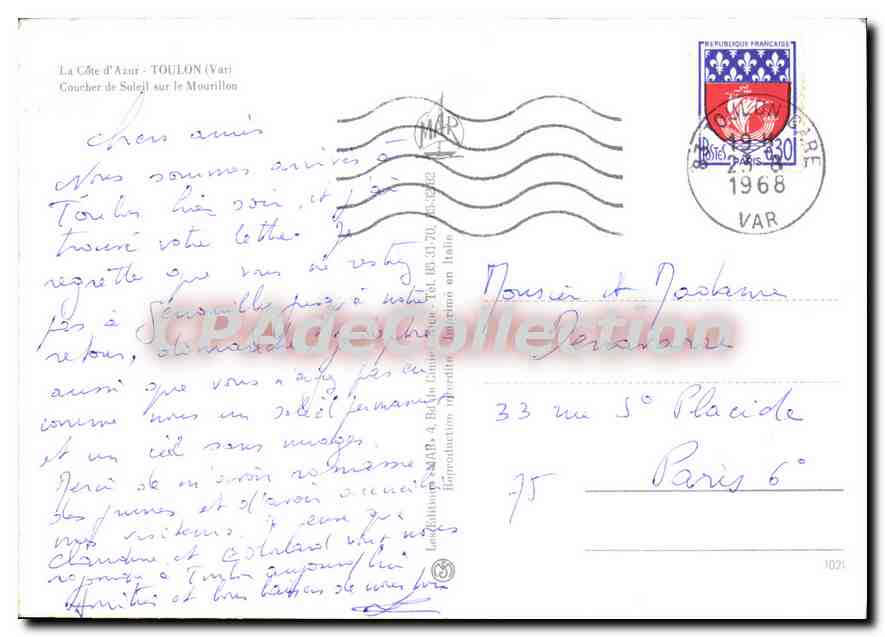 La Côte d'Azur - TOULON (Var)
Coucher de Soleil sur le Mourillon
Chers amis
Nous sommes arrivés à
Toulon hier soir, et j'ai
trouvé votre lettre. Je
regrette que vous ne restiez
pas à jusqu'à notre
retour,
aussi que vous n'ayez pas eu
comme nous un soleil permanent
et un ciel sans nuages.
Merci de m'avoir ramassé
des prunes et d'avoir accueilli
mes visiteurs. Je pense que
Claudine et vont nous
rejoindre à Toulon aujourd'hui
Amitiés et bons baisers de nous tous
MAR
Les Editions «MAR» 4, Bd de Cimiez - Tel. 85 31-70,
Reproduction interdite - Imprimé en Italie
REPUBLIQUE FRANÇAISE
POSTES
PARIS
0,30
83 TOULON GARE
19 H
1968
VAR
Monsieur et Madame
33 rue St Placide
Paris 6°
75
1021
CPAdeCollection